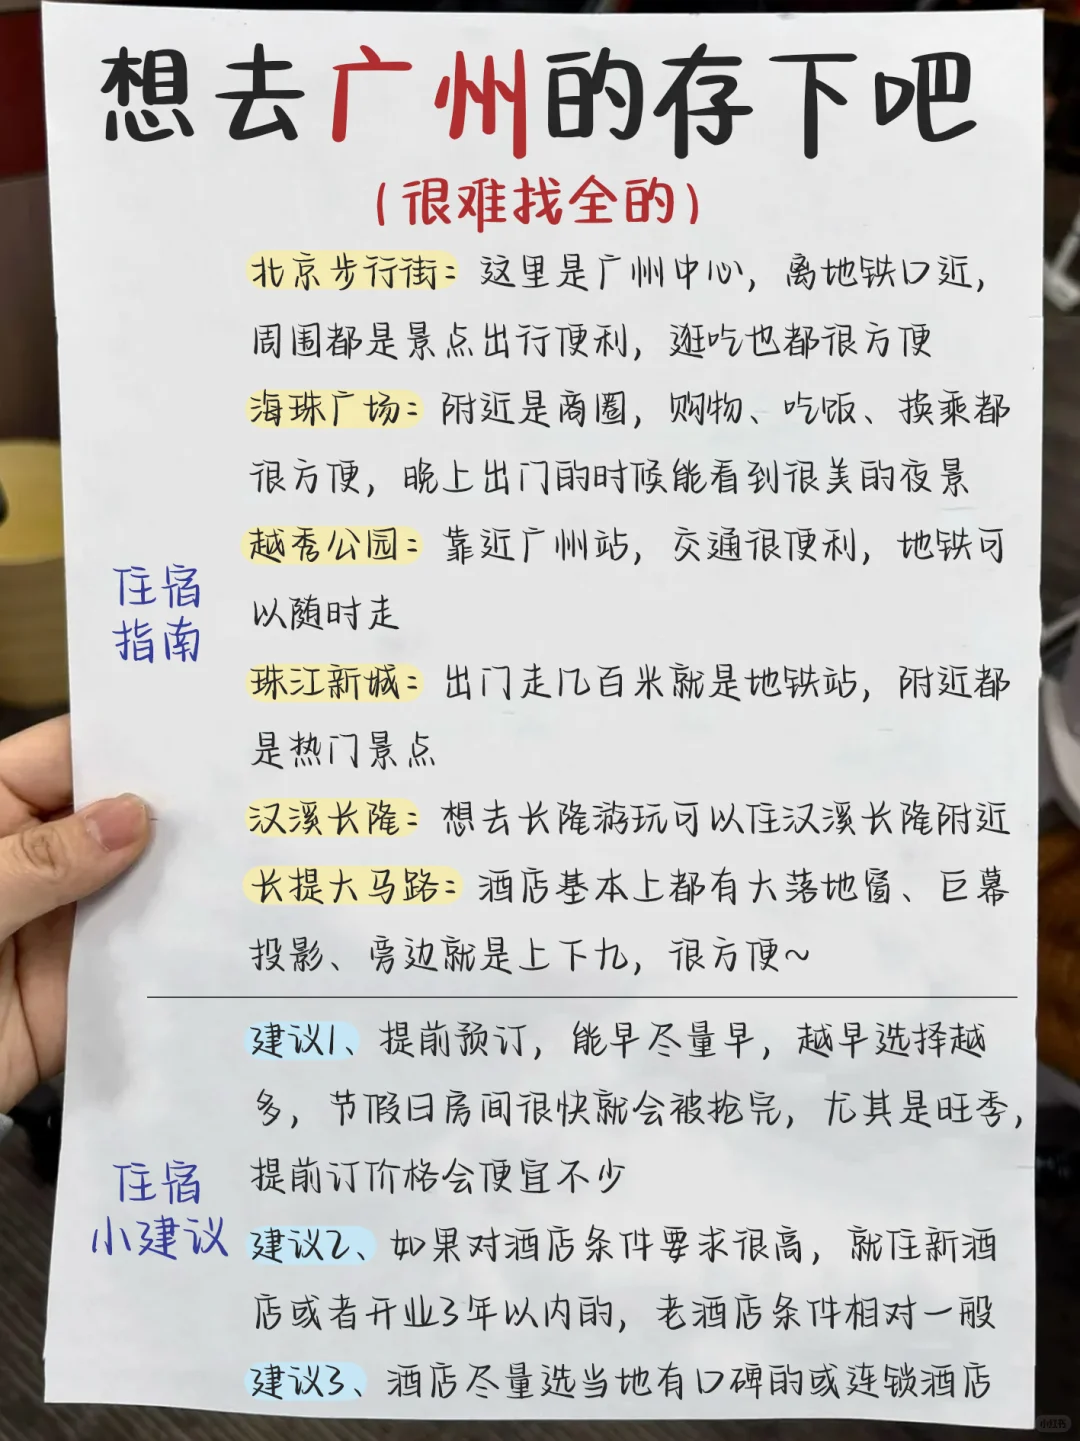 想去广州的存下吧
(很难找全的)
北京步行街:这里是广州中心,离地铁口近,
周围都是景点出行便利,逛吃也都很方便
海珠广场:附近是商圈,购物、吃饭、换乘都
很方便,晚上出门的时候能看到很美的夜景
越秀公园:靠近广州站,交通很便利,地铁可
以随时走
住宿
指南
珠江新城:出门走几百米就是地铁站,附近都
是热门景点
汉溪长隆:想去长隆游玩可以住汉溪长隆附近
长提大马路:酒店基本上都有大落地窗、巨幕
投影、旁边就是上下九,很方便~
建议1、提前预订,能早尽量早,越早选择越
多,节假日房间很快就会被抢完,尤其是旺季,
提前订价格会便宜不少
住宿
小建议
建议2、如果对酒店条件要求很高,就住新酒
店或者开业3年以内的,老酒店条件相对一般
建议3、酒店尽量选当地有口碑的或连锁酒店
小红书